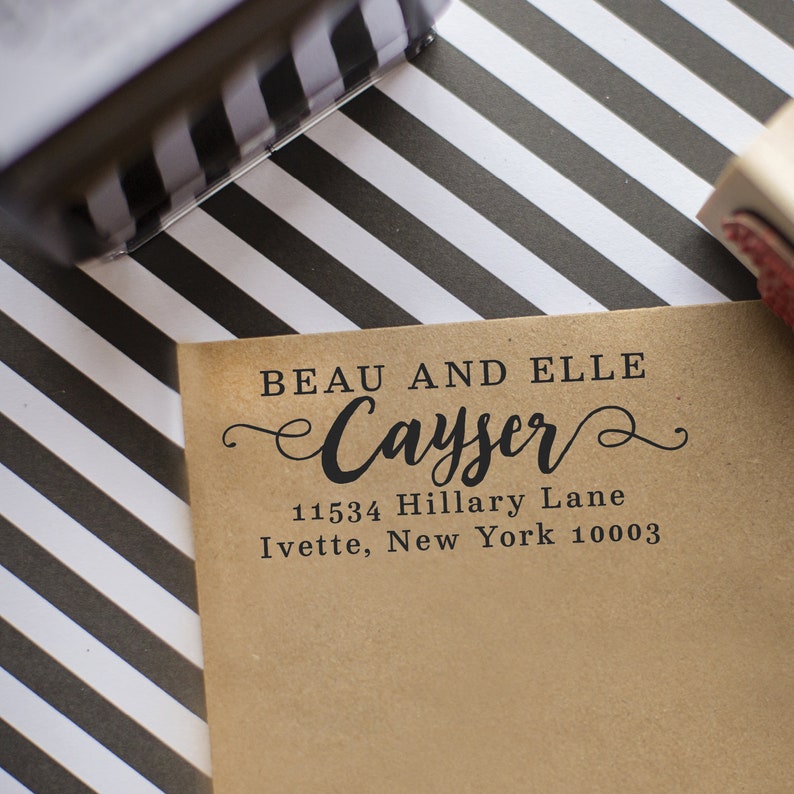 BEAU AND ELLE
Cayser
11534 Hillary Lane
Ivette, New York 10003